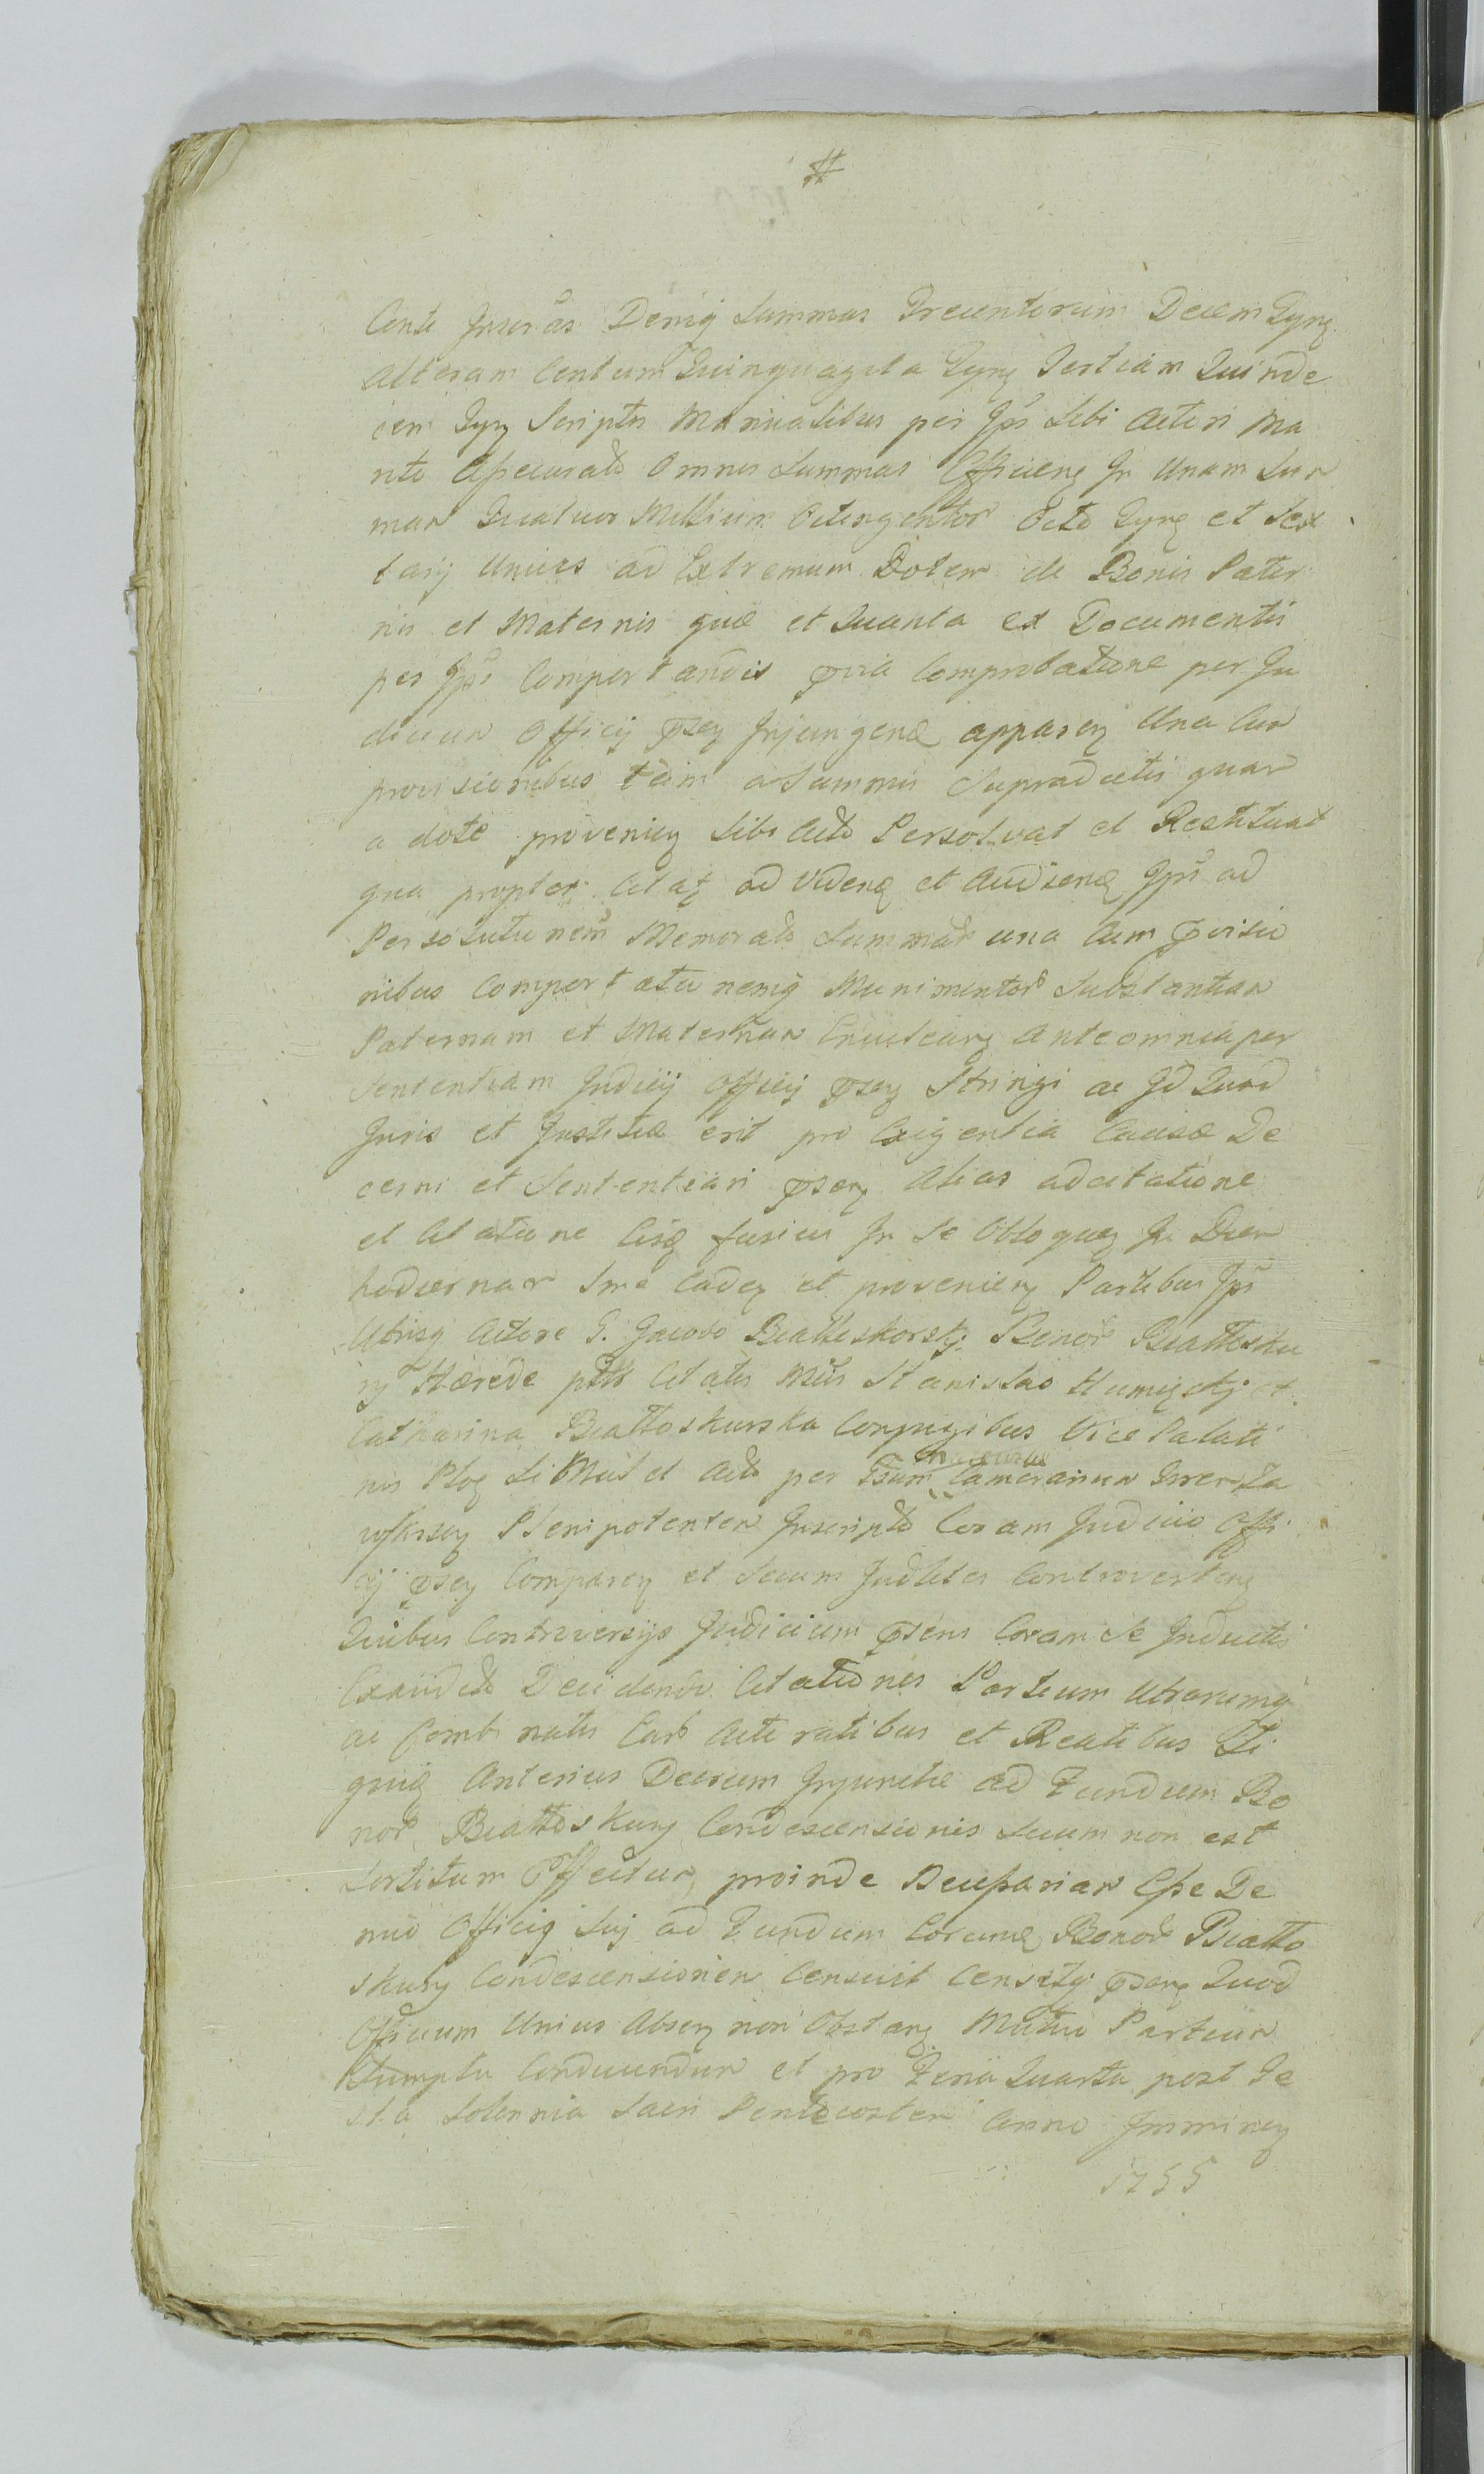 #
Centi Inscras Deniq Summas Trecentorum Decem Tynz
Alteram Centum Quinquaginta Tynz Tertiam Quinde
cem Tynz Scriptis Manualibus per Ips Sibi Actori Ma
nte Assecurato Omnes Summas Efficienz In Unam Sum
mam Quatuor Millium Octingentor Octo Tynz et Sex
tarij Unius ad Extremum Dotem de Bonis Pater
nis et Maternis quæ et Quanta ex Documentis
per Ips Comportandis pria Comprobatione per Iu
dicium Officij psez Injungenæ apparez Una Cum
provisionibus tam a Summis Supradictis quam
a dote provenienz Sibi Acto Persolvat et Restituat
qua propter Citatz ad Videnz et Audienz Ips ad
Persolutionem Memorats Summar una Cum pvisio
nibus Comportationemq Munimentor Substantiam
Paternam et Maternam Enucleanz Ante omnia per
Sententiam Judicij Officij psez Stringi ac Id Quod
Juris et Justitiæ erit pro Exigentia Causæ De
cerni et Sententiari psez Alias adcitatione
et Citatione Eisq fusius In Se Obloquenz In Diem
hodiernam Sme Cadez et provenienz Partibus Ips
Utrisq Actore G. Jacobo Białłoskorskj Bonor Białłosku
ry Hærede ptto Citatis Mcis Stanislao Humięckj et
Catharina Białłoskurska Conjugibus Vice Palati
nis Ploz Si Mcis et Acto per Gsum Camerarium
Plenipotentem Inscripto Coram Judicio Offi
cij psez Comparez et Secum Judliter Controvertenz
Quibus Controversijs Judicium psens Coram Se Inductis
Exaudito Decidendo Citationes Partium Utrarumq
ac Combinatis Earb Actoratibus et Reatibus Si
quidz Anterius Decrum Injunctæ ad Fundum Bo
nor Białłoskury Condescensionis Suum non est
Sortitum Effectum, proinde Necessariam Esse De
nuo Officij Sui ad Fundum Eorumdz Bonor Białło
skury Condescensionem Censuit Censetq psenz Quod
Officium Unius Absenz non Obstanz Mutuo Partium
Sumptu Conducendum et pro Feria Quarta post Fe
sta Solennia Sacri Pentecosten Anno Imminenz
1755